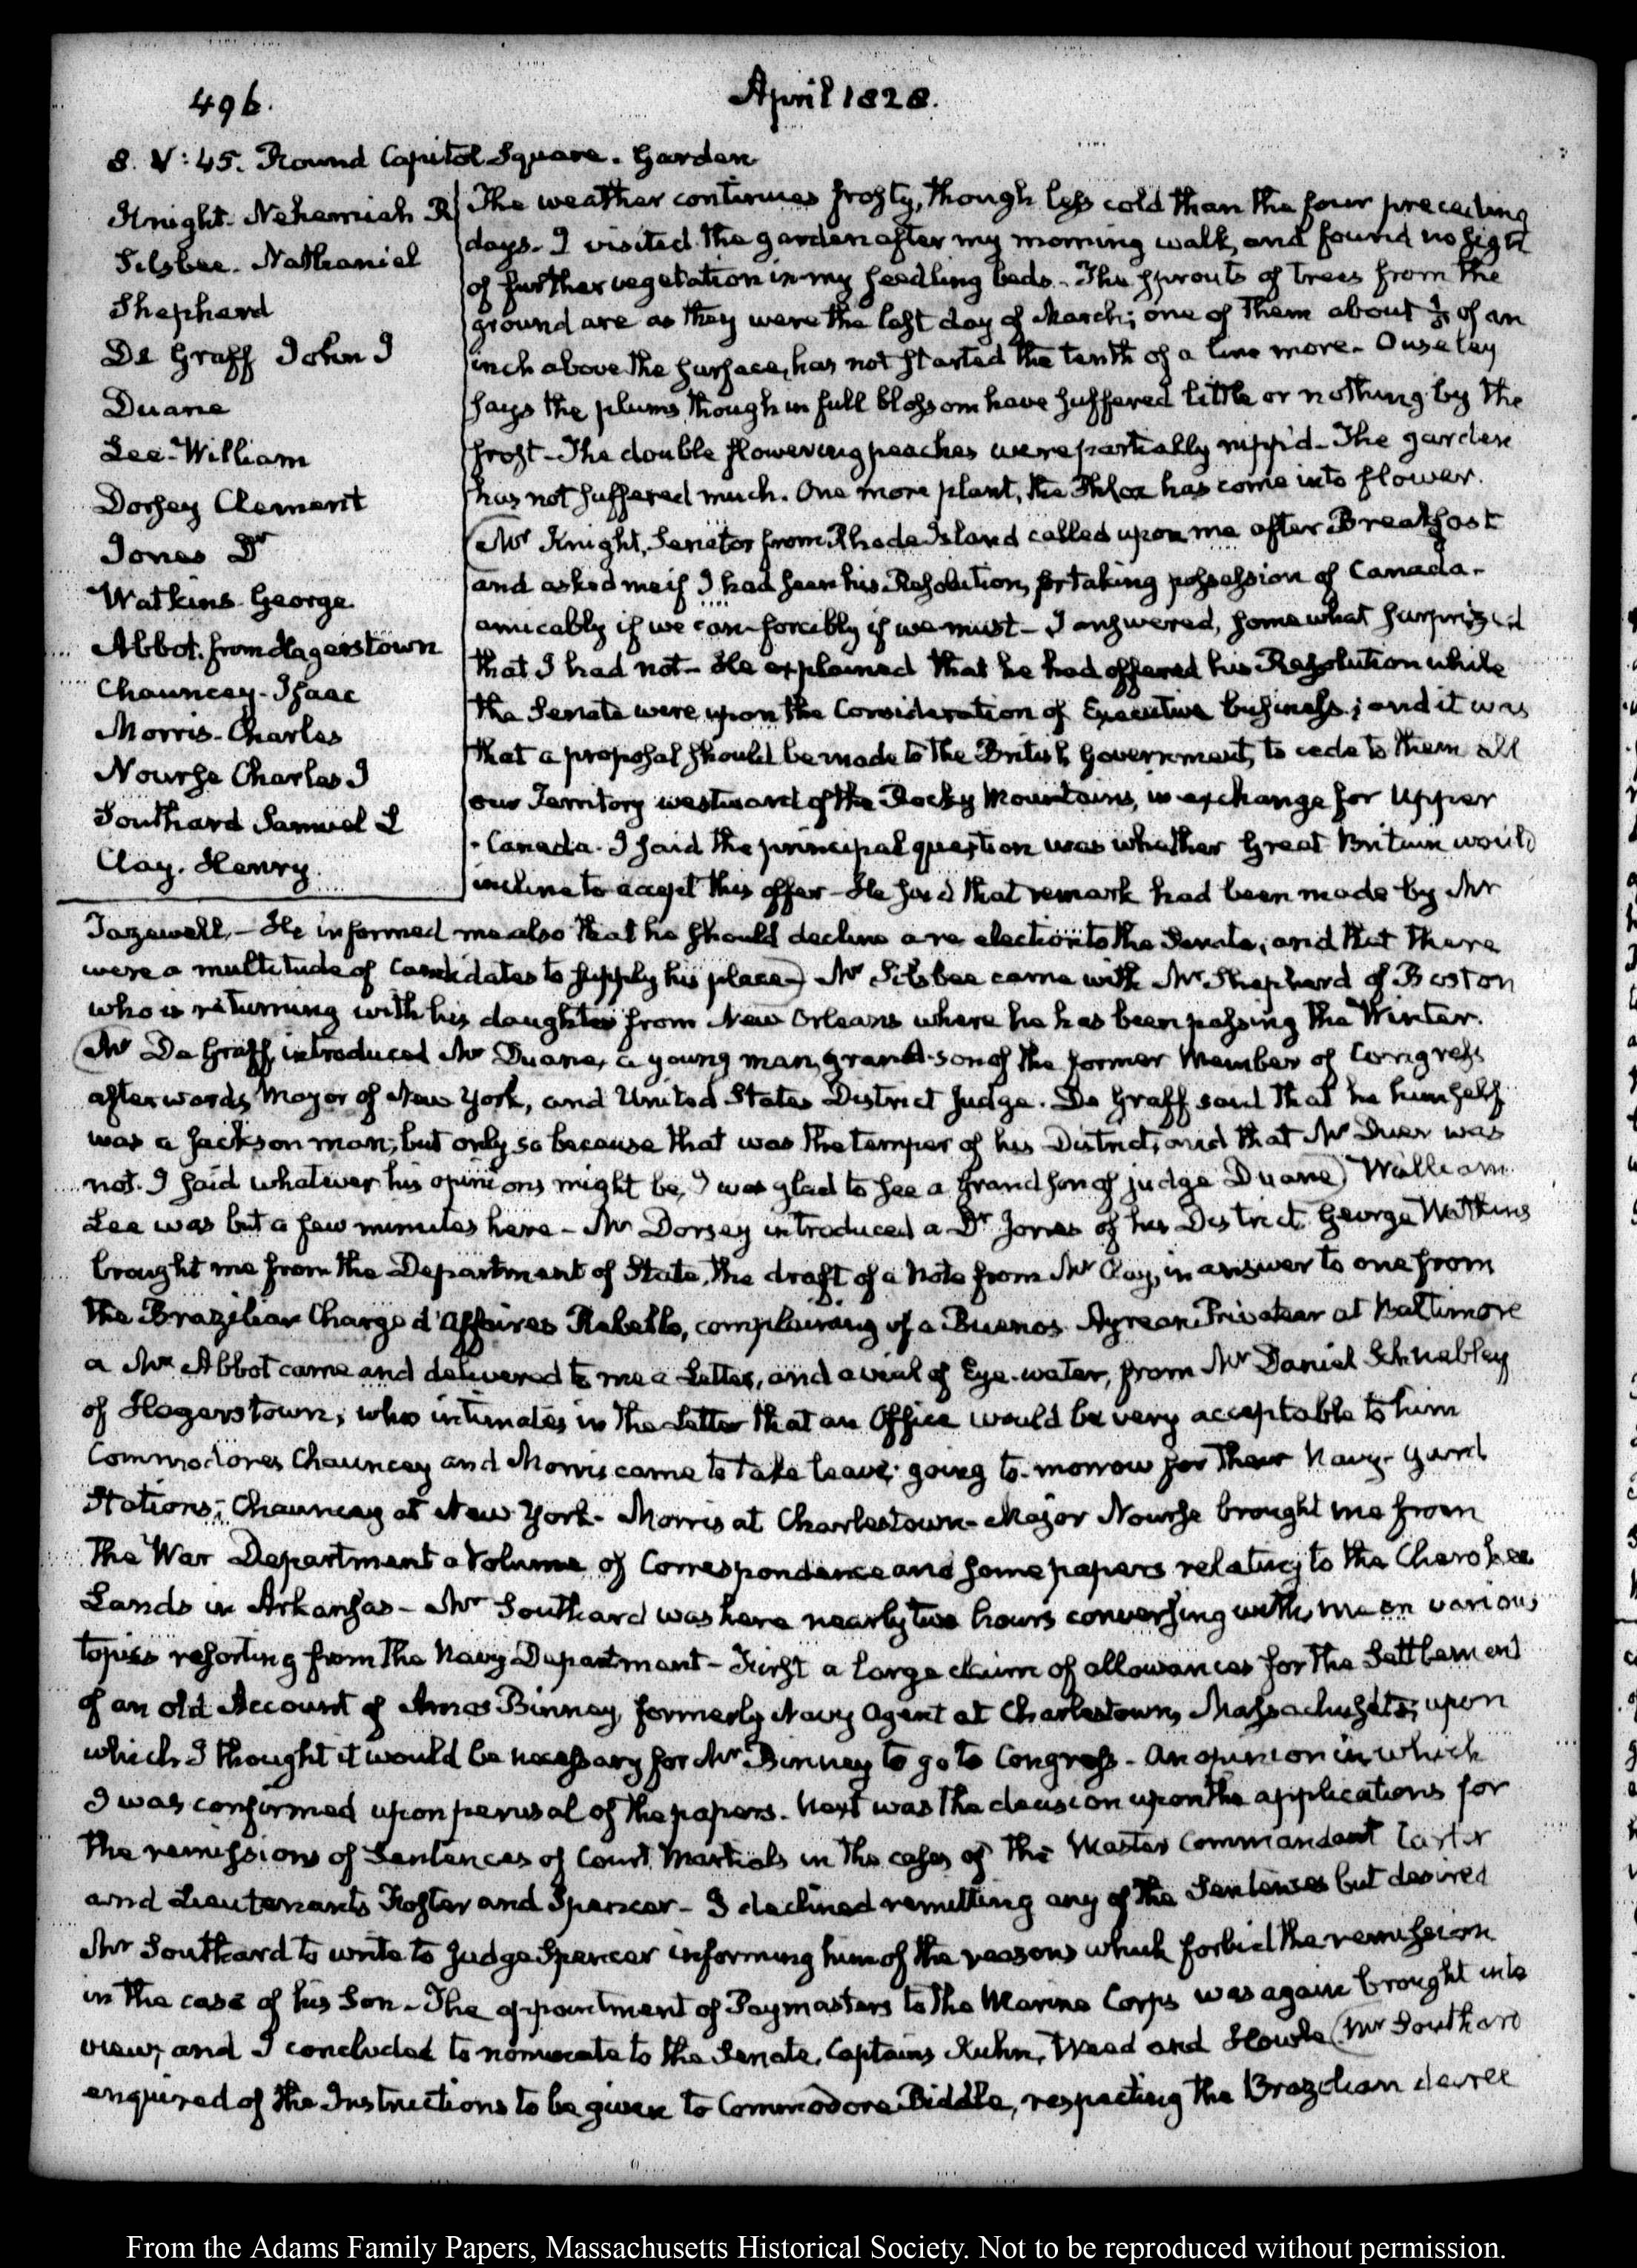 496.
April 1828.
8. V:45. Round Capitol Square. Garden
Knight. Nehemiah R
Silsbee. Nathaniel
Shephard
De Graff John I
Duane
Lee William
Dorsey Clement
Jones Dr
Watkins George
Abbot. from Hagerstown
Chauncey Isaac
Morris Charles
Nourse Charles J
Southard Samuel L
Clay. Henry
The weather continues frosty, though less cold than the four preceding
days. I visited the garden after my morning walk, and found no sight
of further vegetation in my seedling beds. The sprouts of trees from the
ground are as they were the last day of March; one of them about of an
inch above the surface, has not started the tenth of a line more. Ouseley
says the plums though in full blossom have suffered little or nothing by the
frost. The double flowering peaches were partially nipp'd. The garden
has not suffered much. One more plant, the Phlox has come into flower.
(Mr Knight, Senator from Rhode Island called upon me after Breakfast
and asked me if I had seen his Resolution, for taking possession of Canada.
amicably if we can forcibly if we must. I answered, somewhat surprized
that I had not. He explained that he had offered his Resolution while
the Senate were upon the Consideration of Executive business; and it was
that a proposal should be made to the British Government, to cede to them all
our Territory westward of the Rocky Mountains, in exchange for Upper
Canada. I said the principal question was whether Great Britain would
incline to accept this offer. He said that remark had been made by Mr
Tazewell. He informed me also that he should decline a re election to the Senate, and that there
were a multitude of candidates to supply his place) Mr Silsbee came with Mr Shephard of Boston
who is returning with his daughter from New Orleans where he has been passing the Winter.
(Mr De Graff, introduced Mr Duane, a young man, grand-son of the former Member of Congress
afterwards Mayor of New York, and United States District Judge. De Graff said that he himself
was a Jackson man, but only so because that was the temper of his District, and that Mr Duer was
not. I said whatever his opinions might be, I was glad to see a Grandson of judge Duane) William
Lee was but a few minutes here. Mr Dorsey introduced a Dr Jones of his District. George Watkins
brought me from the Department of State, the draft of a Note from Mr Clay, in answer to one from
the Brazilian Charge d'Affaires Rebello, complaining of a Buenos Ayrean Privateer at Baltimore
a Mr Abbot came and delivered to me a Letter, and a vial of Eye-water, from Mr Daniel Schnebley
of Hagerstown, who intimates in the Letter that an Office would be very acceptable to him
Commodores Chauncey and Morris came to take leave; going to-morrow for their Navy-yard
Stations; Chauncey at New York. Morris at Charlestown. Major Nourse brought me from
the War Department a Volume of Correspondence and some papers relating to the Cherokee
Lands in Arkansas. Mr Southard was here nearly two hours conversing with me on various
topics resorting from the Navy Department. First a large claim of allowances for the Settlement
of an old Account of Amos Binney, formerly Navy Agent at Charlestown, Massachusetts; upon
which I thought it would be necessary for Mr Binney to go to Congress. An opinion in which
I was confirmed upon perusal of the papers. Next was the decision upon the applications for
the remissions of Sentences of Court Martials in the cases of the Master Commandant Carter
and Lieutenants Foster and Spencer. I declined remitting any of the Sentences but desired
Mr Southard to write to Judge Spencer informing him of the reasons which forbid the remission
in the case of his Son. The appointment of Paymasters to the Marine Corps was again brought into
view, and I concluded to nominate to the Senate, Captains Kuhn, Weed and Howle (Mr Southard
enquired of the Instructions to be given to Commodore Biddle, respecting the Brazilian decree
From the Adams Family Papers, Massachusetts Historical Society. Not to be reproduced without permission.